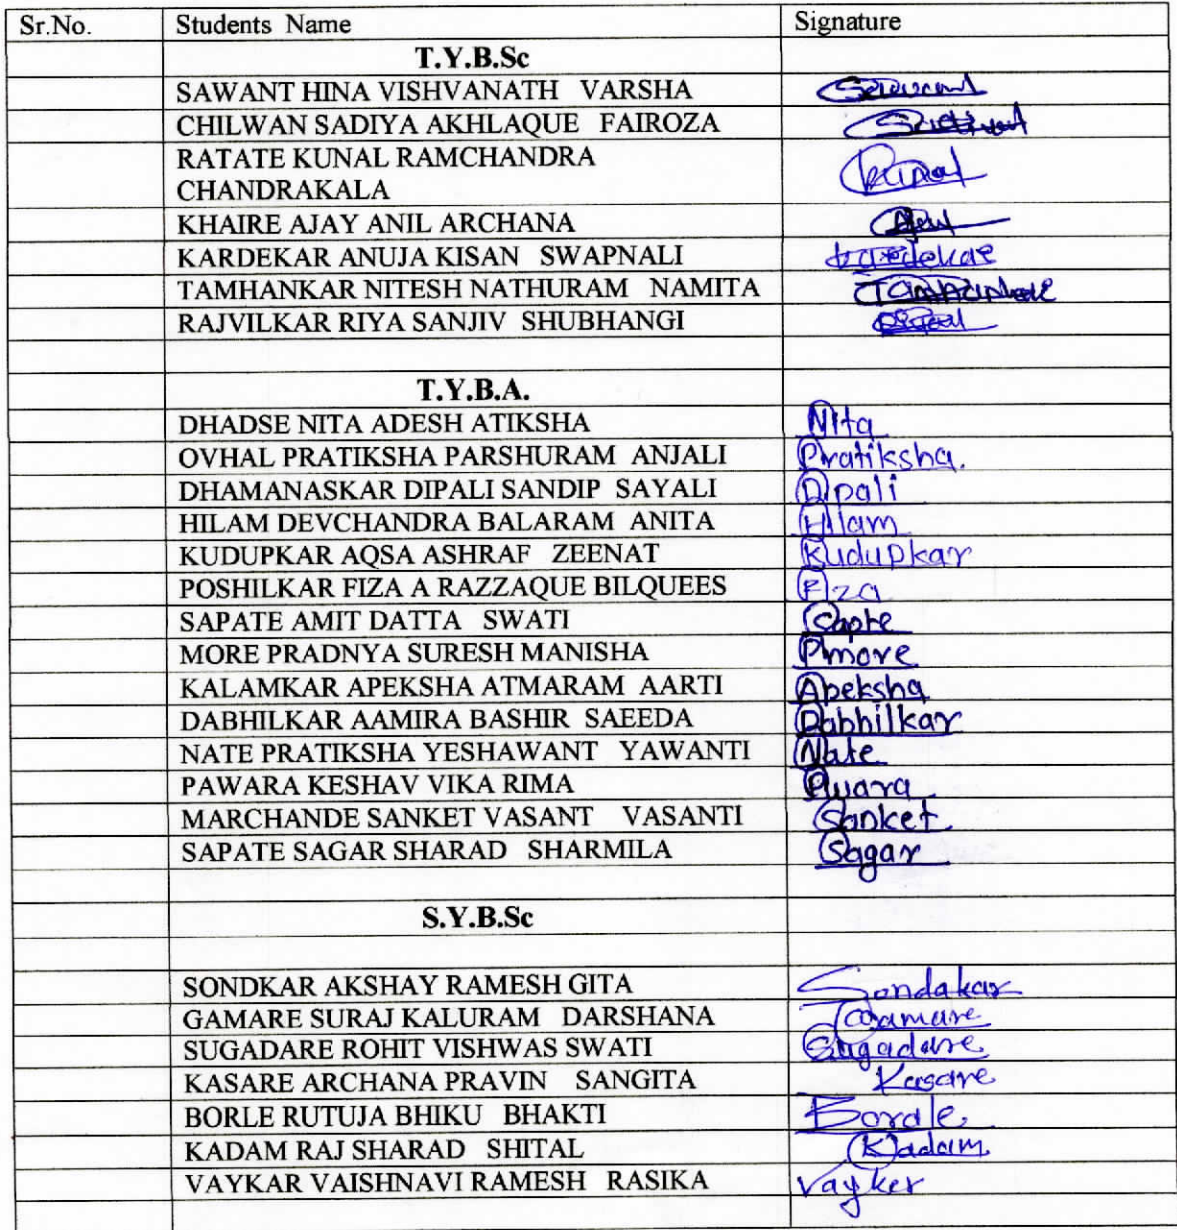 Sr.No. Students Name Signature
T.Y.B.Sc
SAWANT HINA VISHVANATH VARSHA Sawant
CHILWAN SADIYA AKHLAQUE FAIROZA
RATATE KUNAL RAMCHANDRA
CHANDRAKALA Kunal
KHAIRE AJAY ANIL ARCHANA
KARDEKAR ANUJA KISAN SWAPNALI kardekar
TAMHANKAR NITESH NATHURAM NAMITA Tamhankar
RAJVILKAR RIYA SANJIV SHUBHANGI
T.Y.B.A.
DHADSE NITA ADESH ATIKSHA Nita
OVHAL PRATIKSHA PARSHURAM ANJALI Pratiksha.
DHAMANASKAR DIPALI SANDIP SAYALI Dipali
HILAM DEVCHANDRA BALARAM ANITA Hilam
KUDUPKAR AQSA ASHRAF ZEENAT Kudupkar
POSHILKAR FIZA A RAZZAQUE BILQUEES Fiza
SAPATE AMIT DATTA SWATI
MORE PRADNYA SURESH MANISHA Pmore
KALAMKAR APEKSHA ATMARAM AARTI Apeksha
DABHILKAR AAMIRA BASHIR SAEEDA Dabhilkar
NATE PRATIKSHA YESHAWANT YAWANTI Nate
PAWARA KESHAV VIKA RIMA
MARCHANDE SANKET VASANT VASANTI Sanket
SAPATE SAGAR SHARAD SHARMILA Sagar
S.Y.B.Sc
SONDKAR AKSHAY RAMESH GITA Sondakar
GAMARE SURAJ KALURAM DARSHANA Gamare
SUGADARE ROHIT VISHWAS SWATI Sugadare
KASARE ARCHANA PRAVIN SANGITA Kasare
BORLE RUTUJA BHIKU BHAKTI Borale
KADAM RAJ SHARAD SHITAL Kadam
VAYKAR VAISHNAVI RAMESH RASIKA Vayker